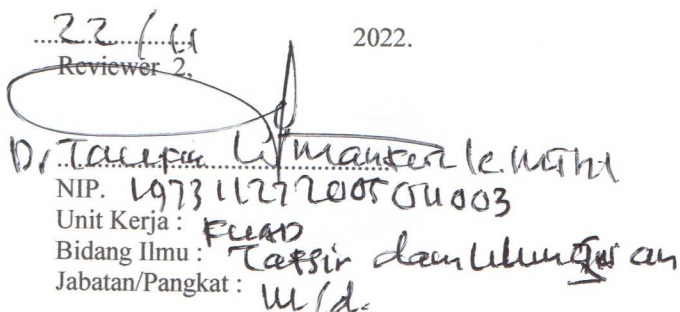 22 / 11 2022.
Reviewer 2,
Dr.
NIP. 19731127200501 1003
Unit Kerja : FUAD
Bidang Ilmu : Tafsir dan Ilmu Qur'an
Jabatan/Pangkat : III/d.